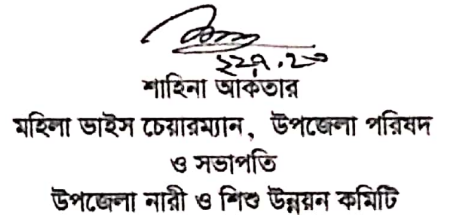 শাহিনা আকতার
মহিলা ভাইস চেয়ারম্যান, উপজেলা পরিষদ
ও সভাপতি
উপজেলা নারী ও শিশু উন্নয়ন কমিটি